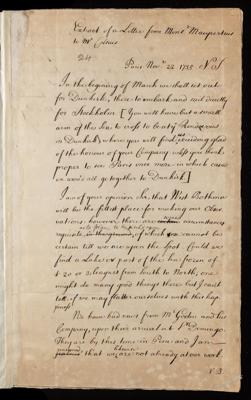 Extract of a Letter from Monsr Maupertuis
to Mr Celsius
24
Paris Novr 22 1735 N.S
In the beginning of March we shall set out
for Dunkirk, there to embark and sail directly
for Stockholm [You will have but a small
arm of the Sea to cross to be at ye Rendezvous
in Dunkirk, where you will find us exceeding glad
of the honour of your Company, unless you think
proper to see Paris once more in which case
we would all go together to Dunkirk]
I am of your opinion Sir, that West Bothnia
will be the fittest place for making our Obser
vations. however, there are circumstances
requisite of which we cannot be
certain till we are upon the Spot. Could we
find a Lake or part of the Sea frozen of
20 or leagues from South to North, one
might do many good things there but I can't
tell if we may flatter ourselves with this hap
piness.
We have had news from Mr Godin and his
Company, upon their arrival at St Domingo.
They are by this time in Peru and I am
that we are not already at our work.